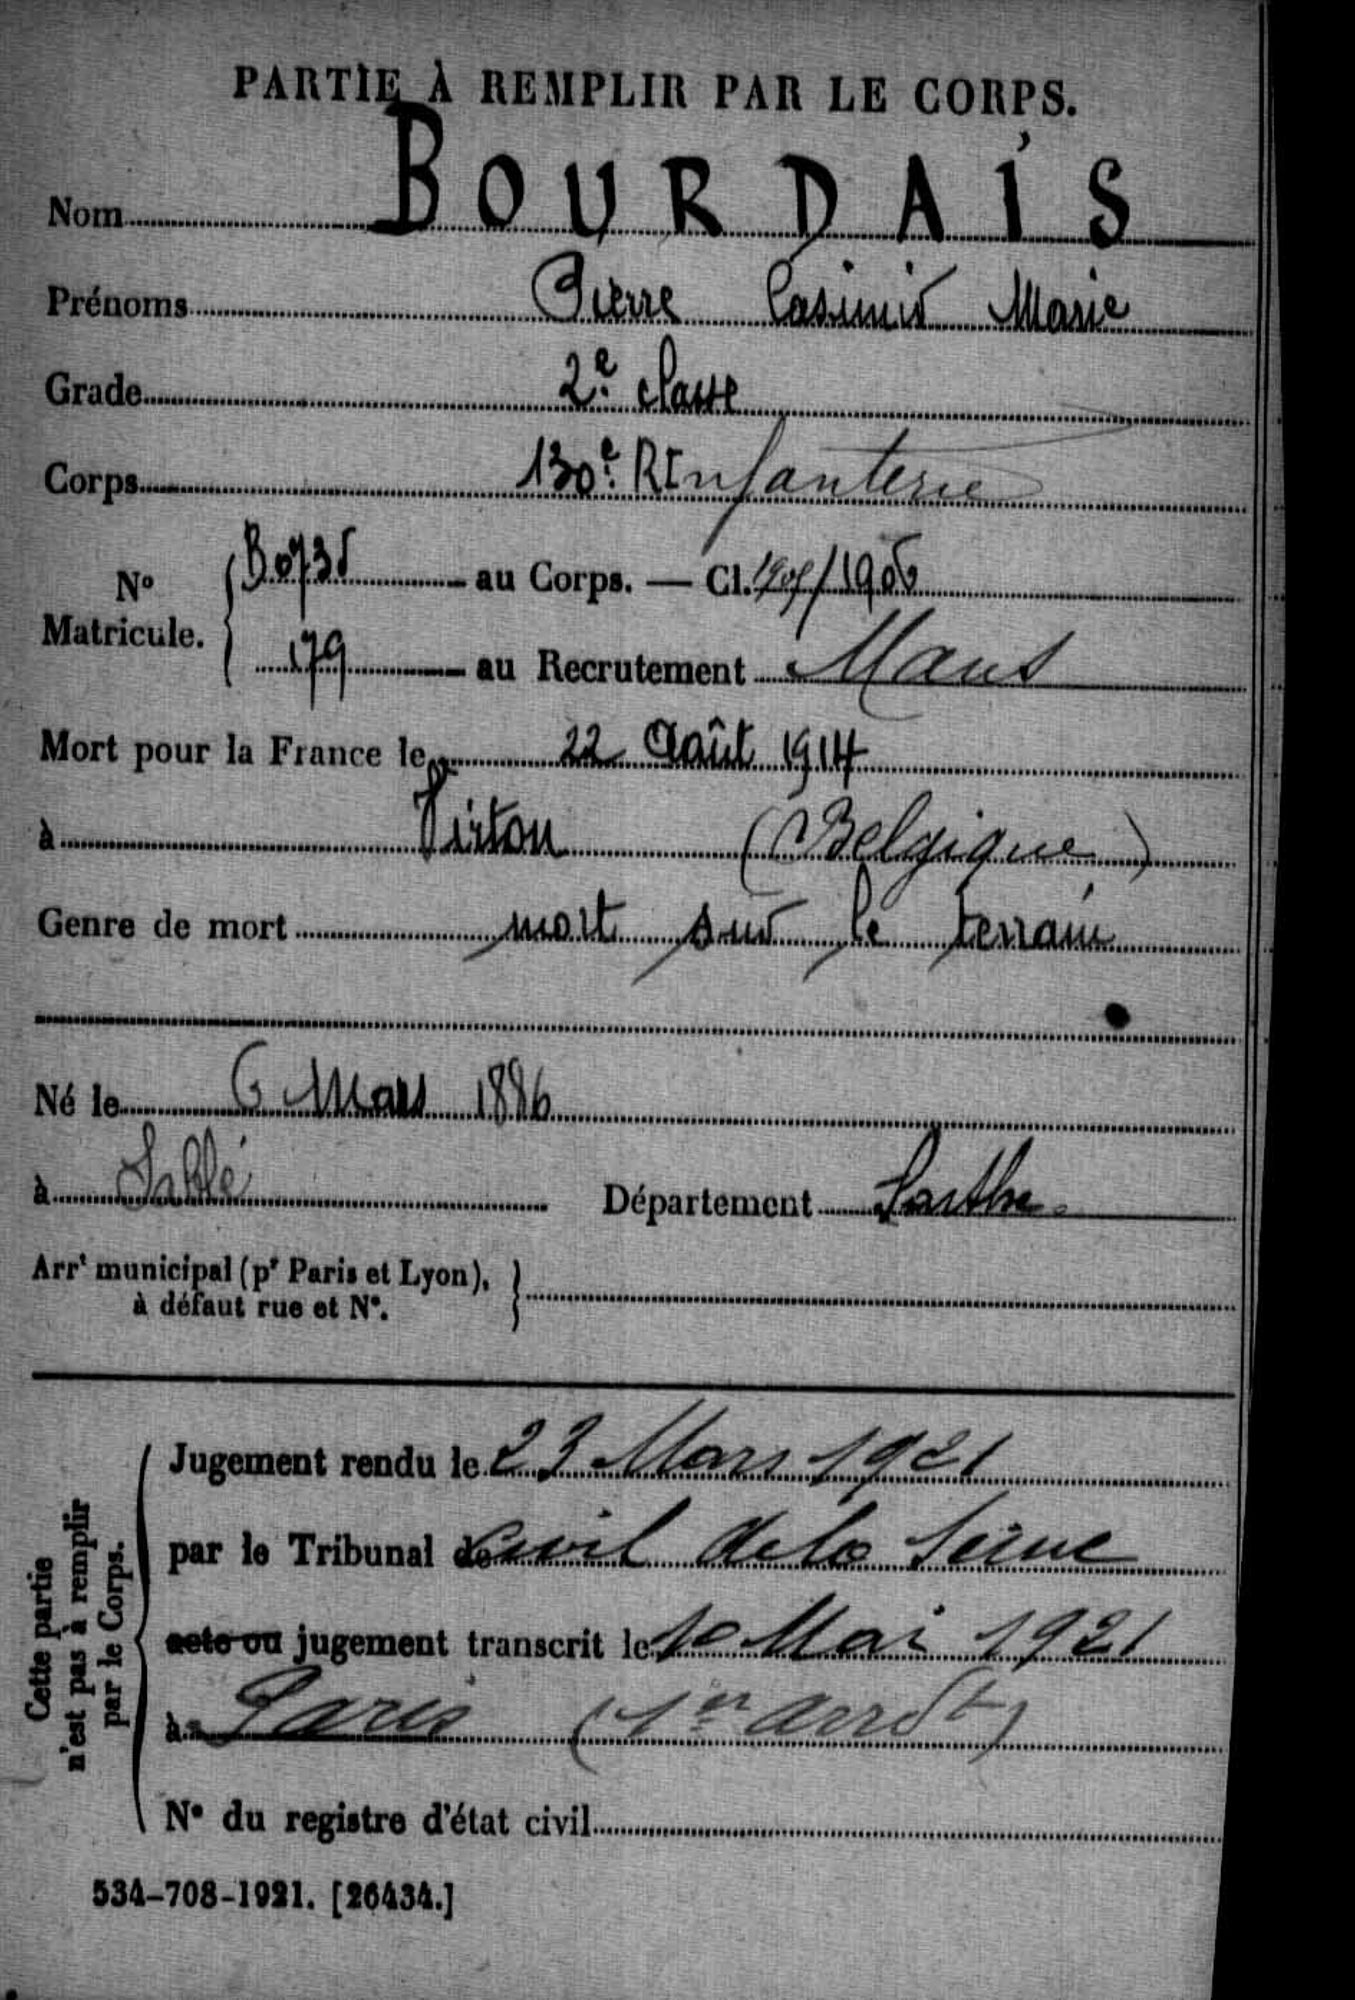 PARTIE À REMPLIR PAR LE CORPS.
Nom BOURDAIS
Prénoms Pierre Casimir Marie
Grade 2e classe
Corps 130e RInfanterie
No Matricule. { au Corps. — Cl. /1906
179 au Recrutement Mans
Mort pour la France le 22 Août 1914
à Virton (Belgique)
Genre de mort mort sur le terrain
Né le 6 Mars 1886
à Sablé Département Sarthe
Arrt municipal (pr Paris et Lyon), }
à défaut rue et No.
Cette partie
n'est pas à remplir
par le Corps.
Jugement rendu le 23 Mars 1921
par le Tribunal de Civil de la Seine
acte ou jugement transcrit le 10 Mai 1921
à Paris (1er arrdt)
No du registre d'état civil
534-708-1921. [26434.]